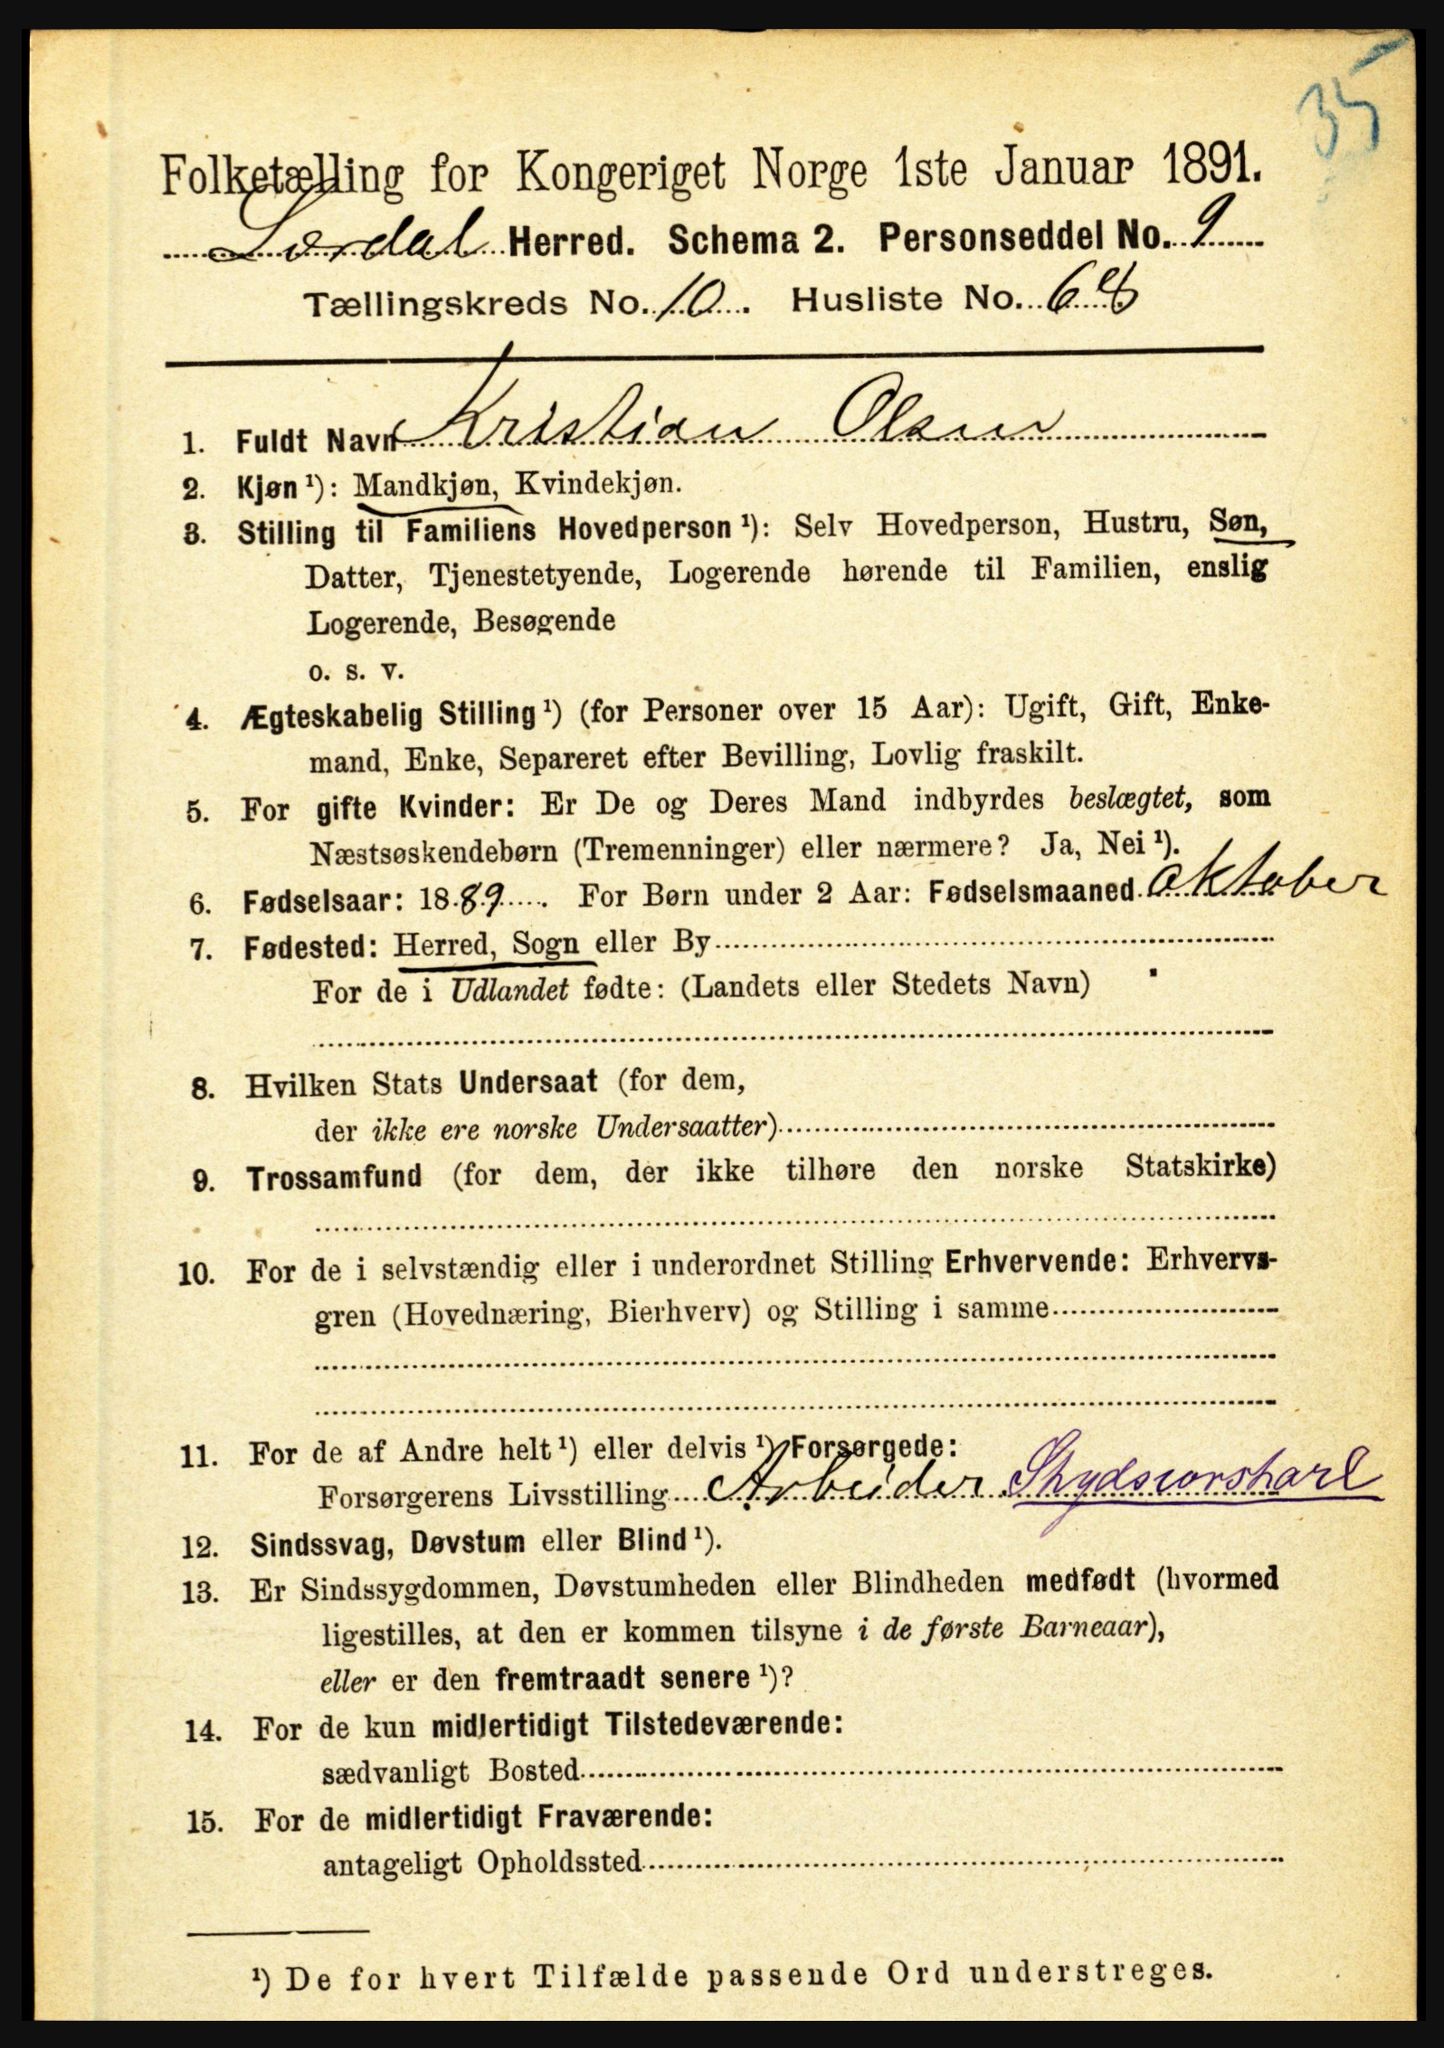 35
Folketælling for Kongeriget Norge 1ste Januar 1891.
Lærdal Herred. Schema 2. Personseddel No. 9
Tællingskreds No. 10. Husliste No. 68
1. Fuldt Navn Kristian Olsen
2. Kjøn ¹): Mandkjøn, Kvindekjøn.
3. Stilling til Familiens Hovedperson ¹): Selv Hovedperson, Hustru, Søn,
Datter, Tjenestetyende, Logerende hørende til Familien, enslig
Logerende, Besøgende
o. s. v.
4. Ægteskabelig Stilling ¹) (for Personer over 15 Aar): Ugift, Gift, Enke-
mand, Enke, Separeret efter Bevilling, Lovlig fraskilt.
5. For gifte Kvinder: Er De og Deres Mand indbyrdes beslægtet, som
Næstsøskendebørn (Tremenninger) eller nærmere? Ja, Nei ¹).
6. Fødselsaar: 1889. For Børn under 2 Aar: Fødselsmaaned Oktober
7. Fødested: Herred, Sogn eller By
For de i Udlandet fødte: (Landets eller Stedets Navn)
8. Hvilken Stats Undersaat (for dem,
der ikke ere norske Undersaatter)
9. Trossamfund (for dem, der ikke tilhøre den norske Statskirke)
10. For de i selvstændig eller i underordnet Stilling Erhvervende: Erhvervs-
gren (Hovednæring, Bierhverv) og Stilling i samme
11. For de af Andre helt ¹) eller delvis ¹) Forsørgede:
Forsørgerens Livsstilling Arbeider
12. Sindssvag, Døvstum eller Blind ¹).
13. Er Sindssygdommen, Døvstumheden eller Blindheden medfødt (hvormed
ligestilles, at den er kommen tilsyne i de første Barneaar),
eller er den fremtraadt senere ¹)?
14. For de kun midlertidigt Tilstedeværende:
sædvanligt Bosted
15. For de midlertidigt Fraværende:
antageligt Opholdssted
¹) De for hvert Tilfælde passende Ord understreges.